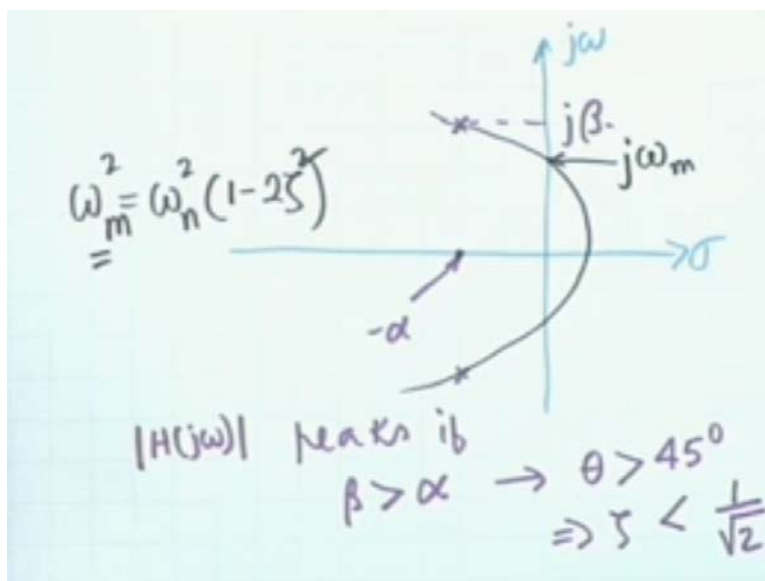 jω
jβ.
jωₘ
ωₘ² = ωₙ²(1-2ζ²)
=
σ
-α
|H(jω)| peaks if
β > α → θ > 45°
⇒ ζ < 1/√2